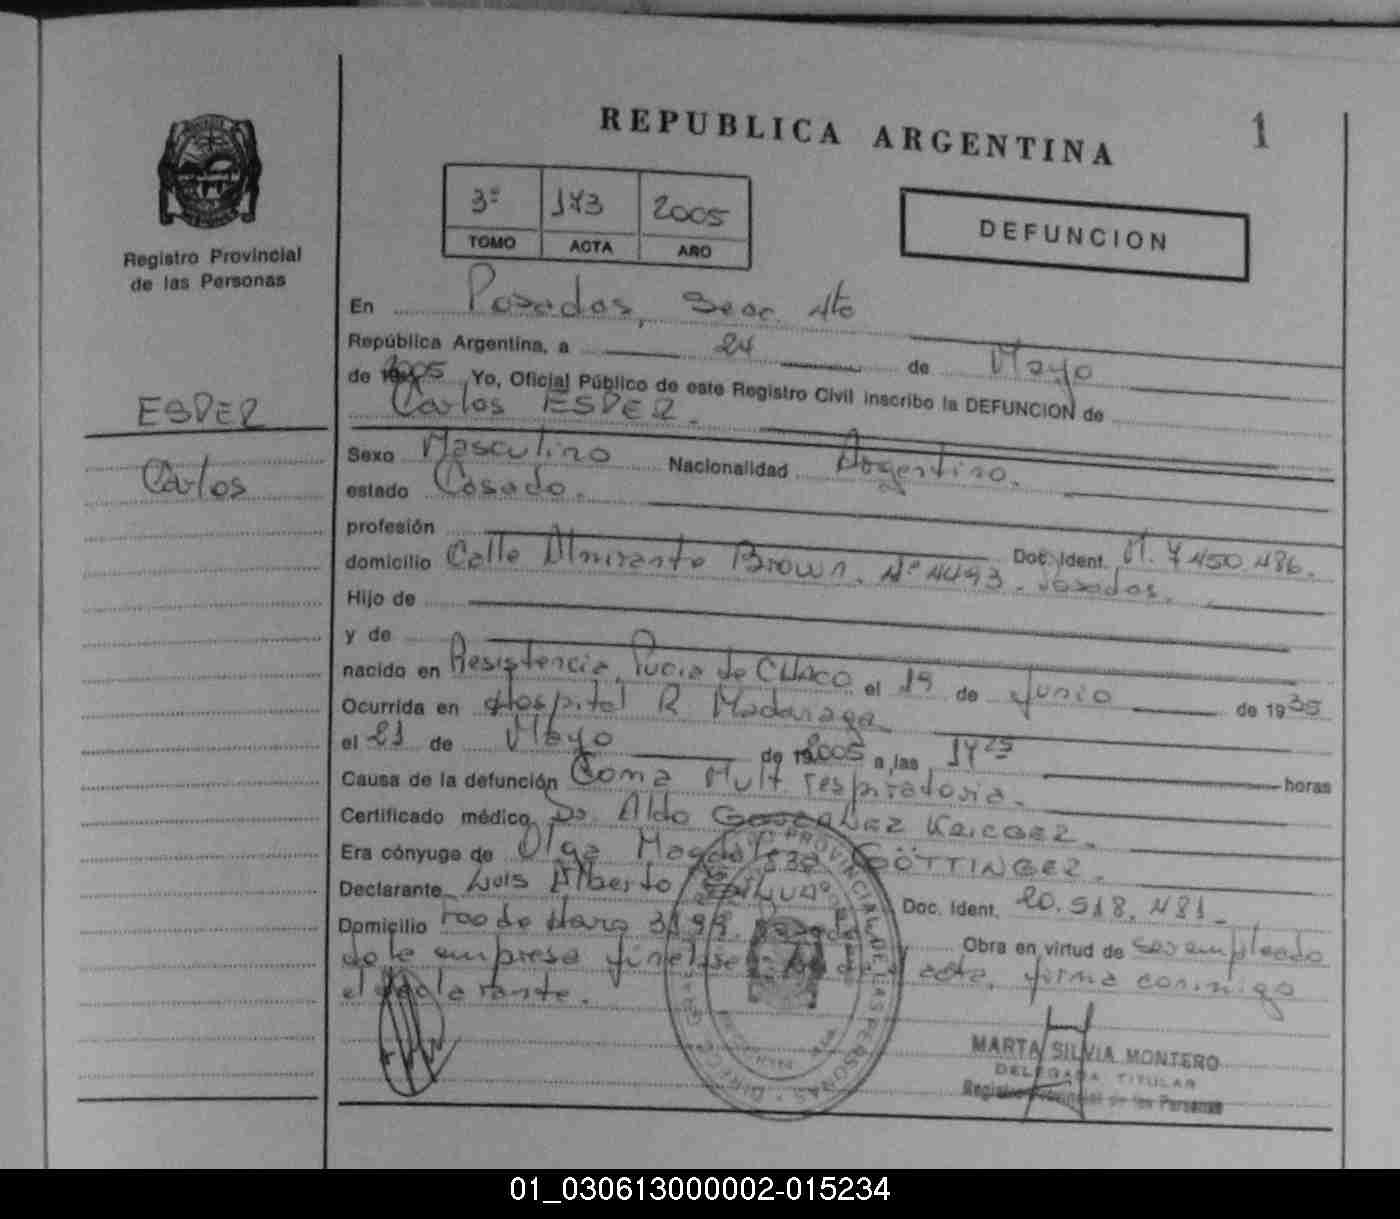 REPUBLICA ARGENTINA
1
Registro Provincial
de las Personas
3º 173 2005
TOMO ACTA AÑO
DEFUNCION
ESPER
Carlos
En Posadas, Secc. 4to
República Argentina, a 24 de Mayo
de 2005 Yo, Oficial Público de este Registro Civil inscribo la DEFUNCION de
Carlos ESPER.
Sexo Masculino Nacionalidad Argentino.
estado Casado.
profesión Doc. Ident. M. 7.450.486.
domicilio Calle Almirante Brown. Nº 4493. Posadas.
Hijo de
y de
nacido en Resistencia, Pvcia de CHACO el 19 de Junio de 1935
Ocurrida en Hospital R Madariaga
el 21 de Mayo de 2005 a las 17 25 horas
Causa de la defunción Coma Mult. respiratoria.
Certificado médico Dr. Aldo
Era cónyuge de Olga GÖTTINGER.
Declarante Luis Alberto Doc. Ident. 20.518.481.
Domicilio Obra en virtud de ser empleado
de la empresa acta, firma conmigo
el declarante.
MARTA SILVIA MONTERO
DELEGADA TITULAR
Registro Provincial de las Personas
01_030613000002-015234